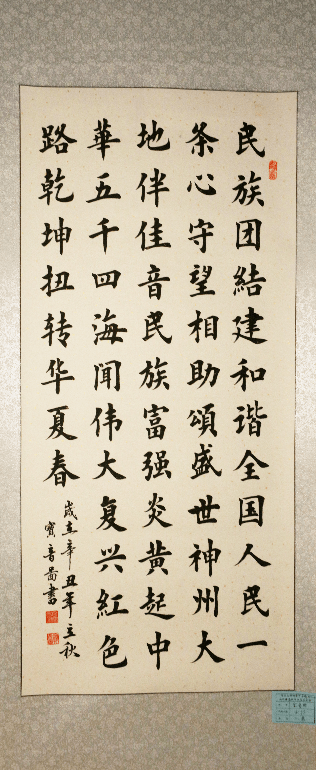 民族团結建和谐全国人民一
条心守望相助頌盛世神州大
地伴佳音民族富强炎黄起中
華五千四海闻伟大复兴紅色
路乾坤扭转华夏春
歲在辛丑年立秋
寳音啚書